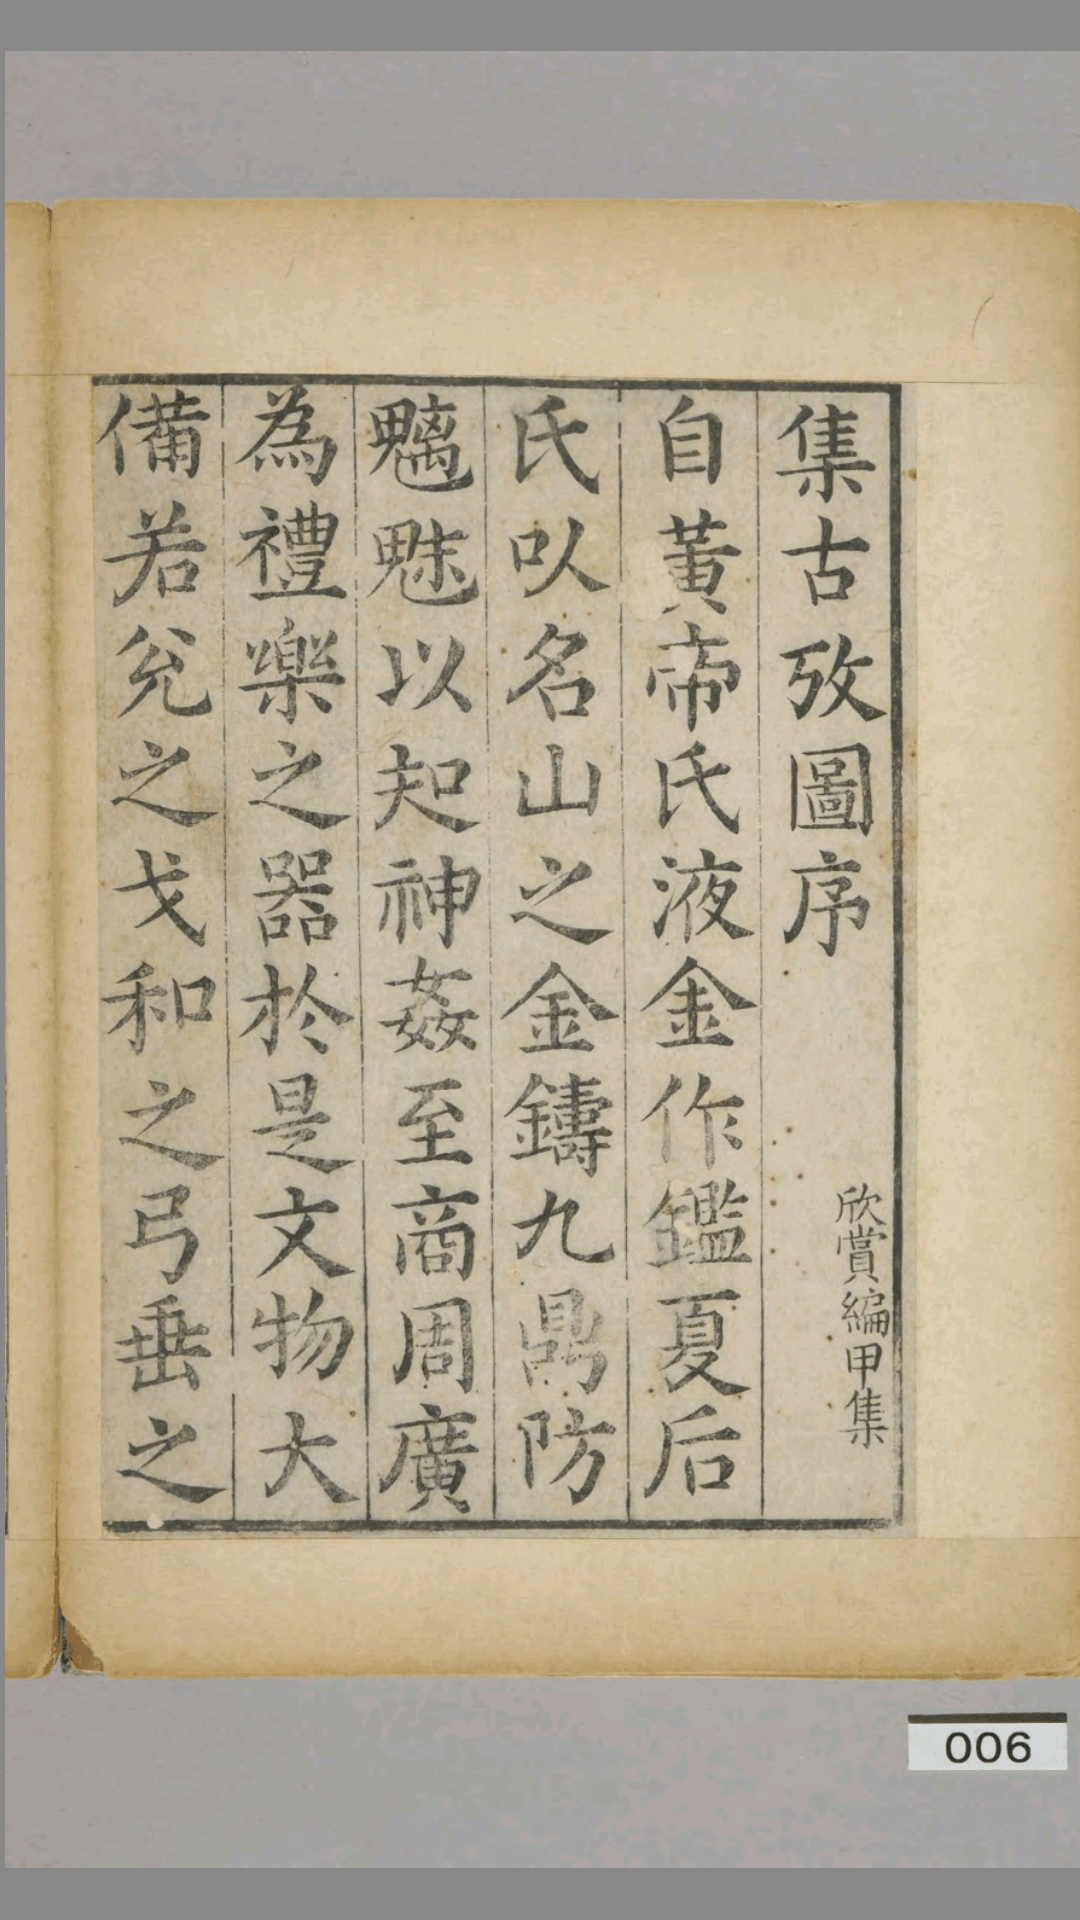 集古攷圖序
欣賞編甲集
自黃帝氏液金作鑑夏后
氏以名山之金鑄九鼎防
魑魅以知神姦至商周廣
為禮樂之器於是文物大
備若兊之戈和之弓垂之
006